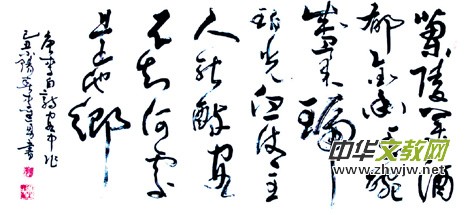 蘭陵美酒
郁金香玉碗
盛来琥
珀光但使主
人能醉客
不知何處
是他鄉
唐李白詩客中作
己丑陽春李書
中华文教网
www.zhwjw.net